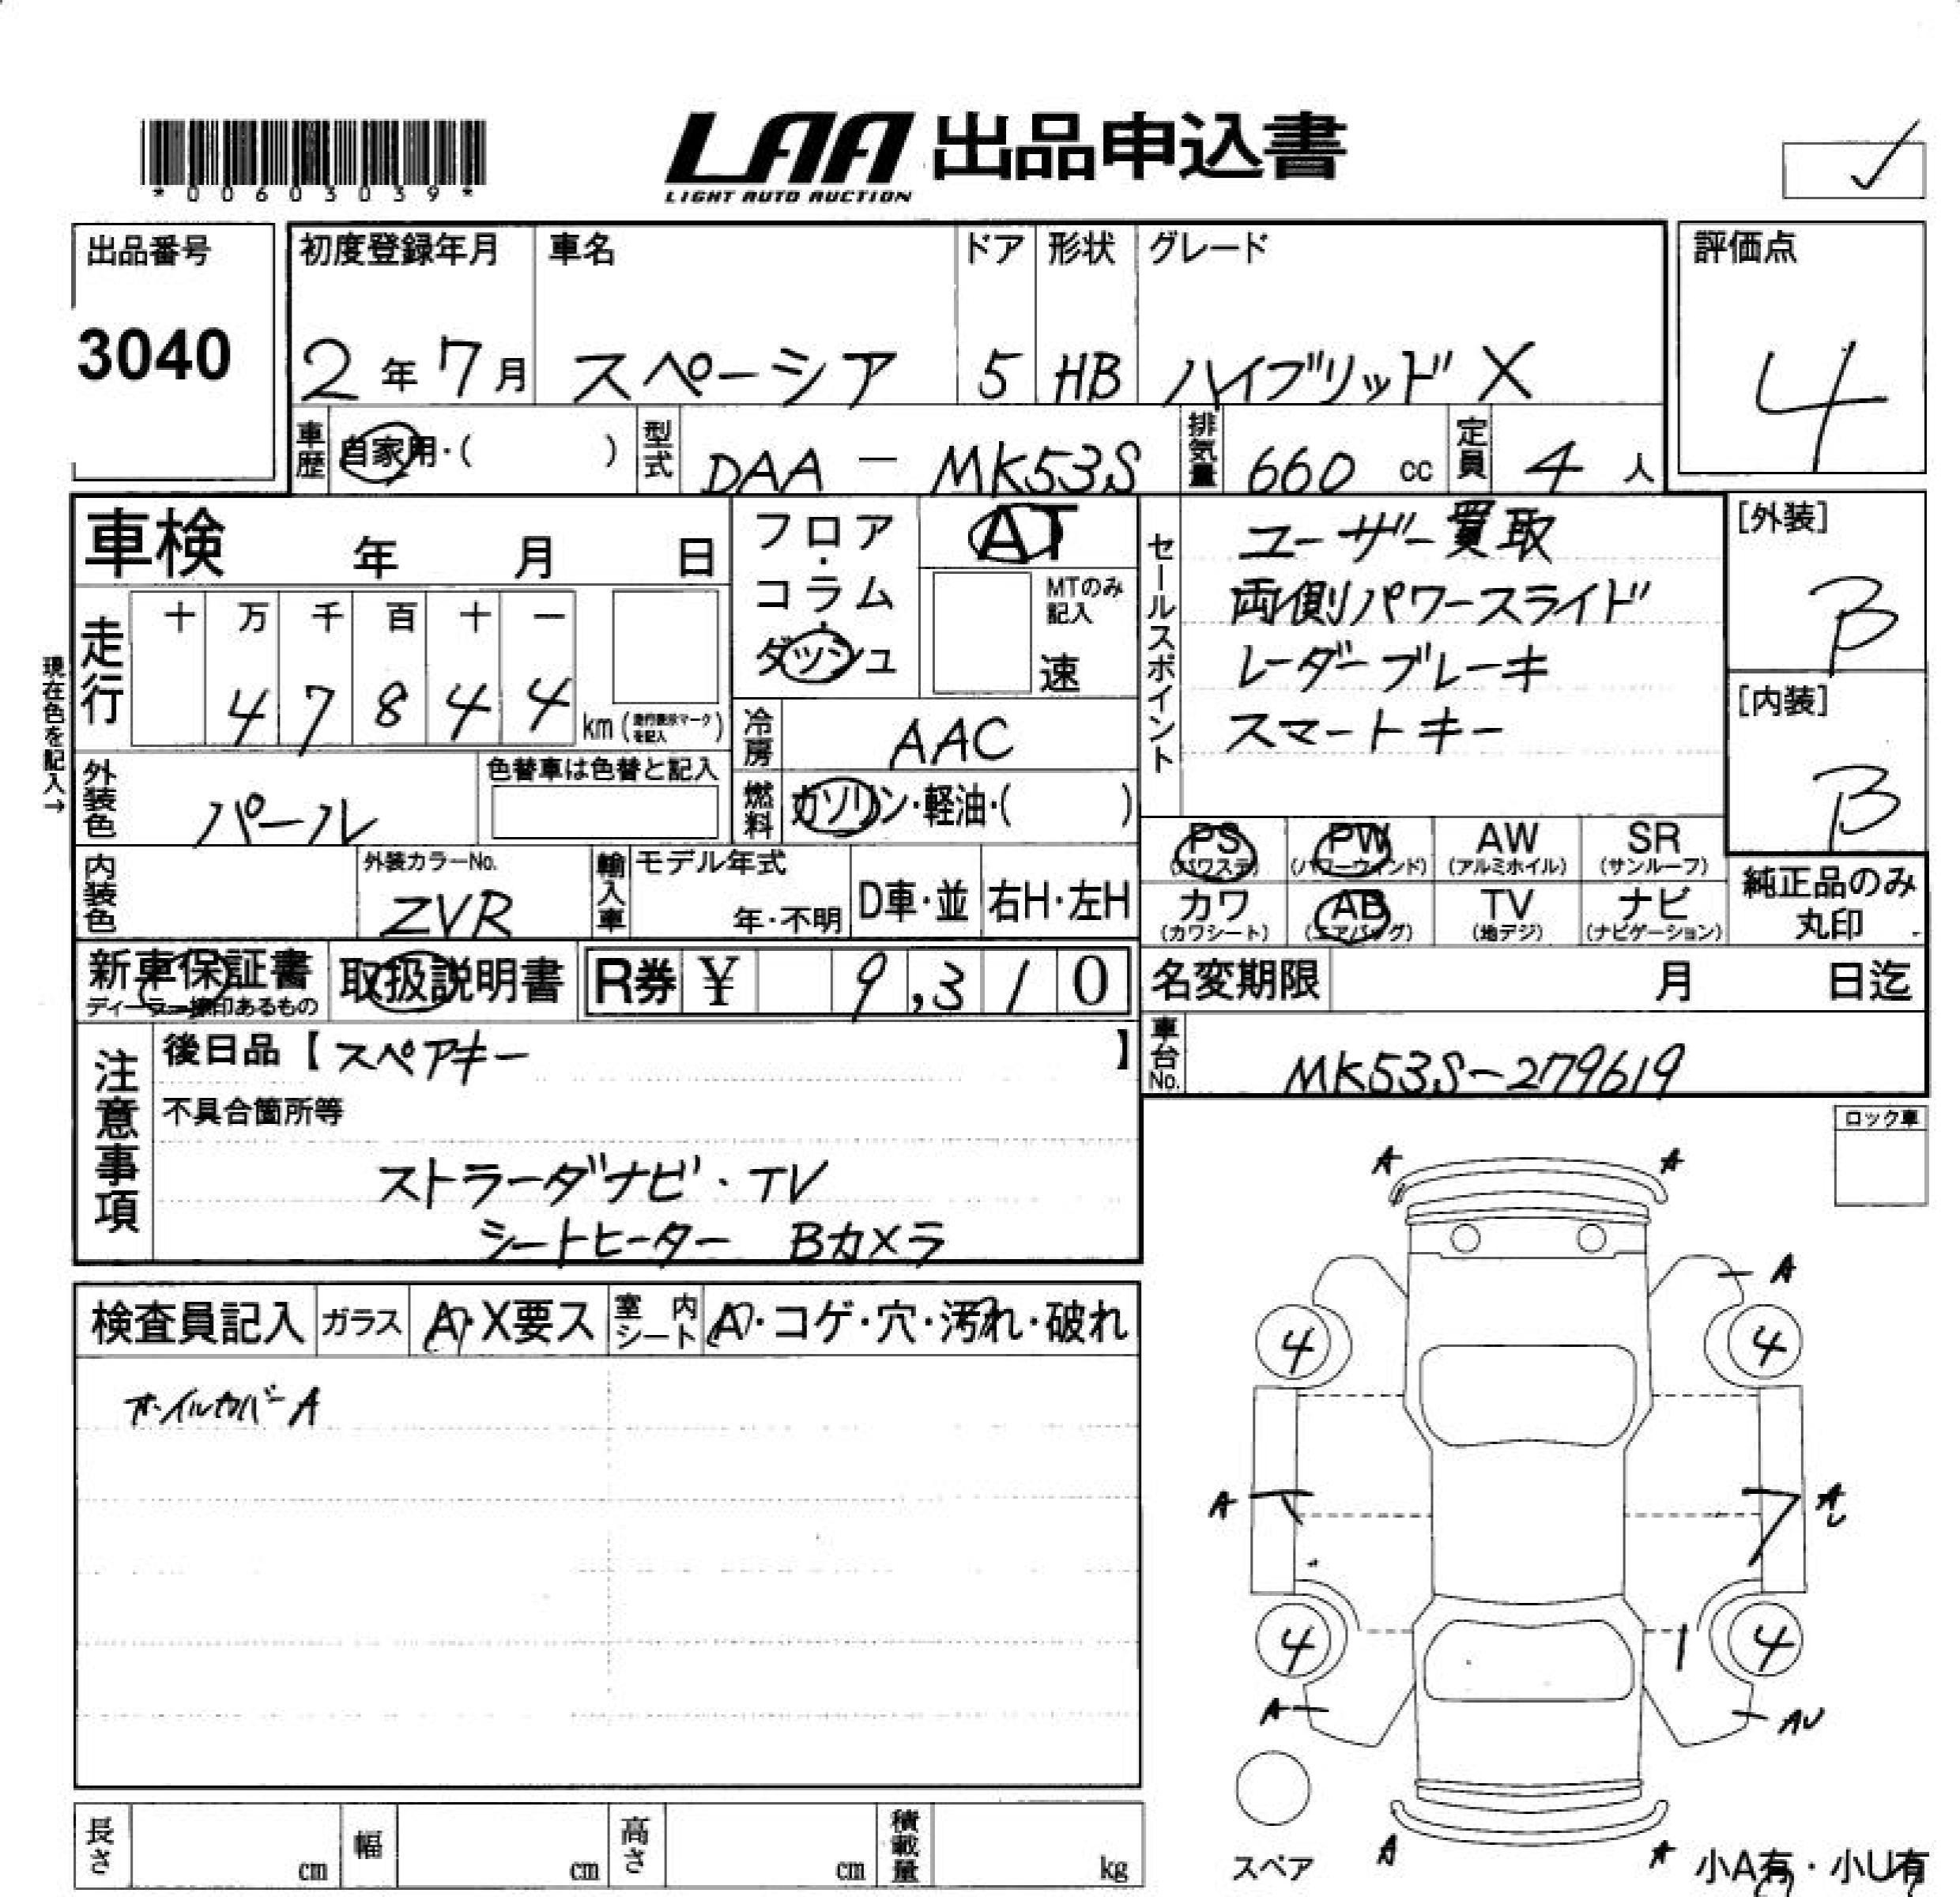 *00603039*
LAA 出品申込書
LIGHT AUTO AUCTION
✓
出品番号
3040
初度登録年月
2年7月
車名
スペーシア
ドア
5
形状
HB
グレード
ハイブリッド X
評価点
4
車歴
自家用・( )
型式
DAA - MK53S
排気量
660 cc
定員
4 人
車検 年 月 日
フロア・コラム・ダッシュ
AT
MTのみ記入
速
セールスポイント
ユーザー買取
両側パワースライド
レーダーブレーキ
スマートキー
[外装]
B
[内装]
B
現在色を記入→
走行
十 万 千 百 十 一
4 7 8 4 4
km (走行表示マークを記入)
冷房
AAC
外装色
パール
色替車は色替と記入
燃料
ガソリン・軽油・( )
内装色
外装カラーNo.
ZVR
輸入車
モデル年式
年・不明
D車・並
右H・左H
PS (パワステ)
PW (パワーウィンド)
AW (アルミホイル)
SR (サンルーフ)
カワ (カワシート)
AB (エアバッグ)
TV (地デジ)
ナビ (ナビゲーション)
純正品のみ丸印
新車保証書
ディーラー捺印あるもの
取扱説明書
R券 ¥ 9,310
名変期限 月 日迄
車台No.
MK53S-279619
注意事項
後日品【スペアキー 】
不具合箇所等
ストラーダナビ・TV
シートヒーター Bカメラ
ロック車
検査員記入
ガラス
A・X要ス
室内シート
A・コゲ・穴・汚れ・破れ
ホイルカバーA
A A
A
4 4
A A
4 4
A AU
スペア
A A
小A有・小U有
長さ cm
幅 cm
高さ cm
積載量 kg